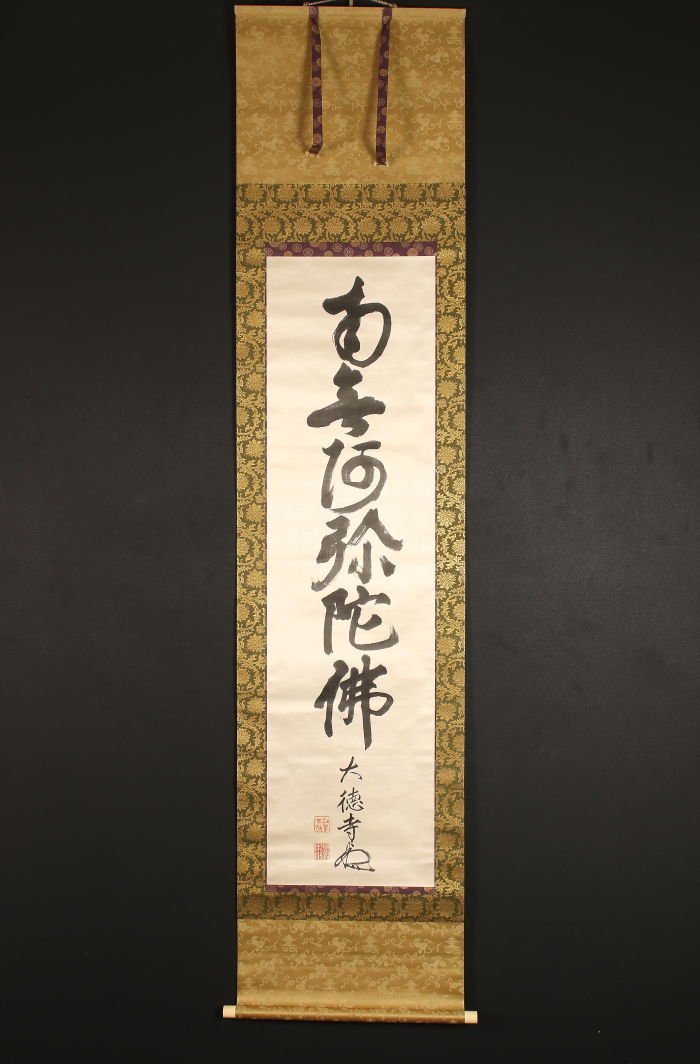 南無阿弥陀佛
大徳寺